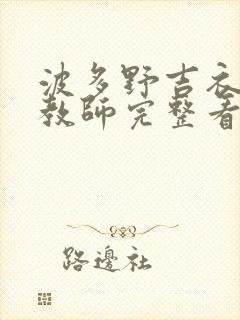 波多野吉衣
教師完整看
路邊社